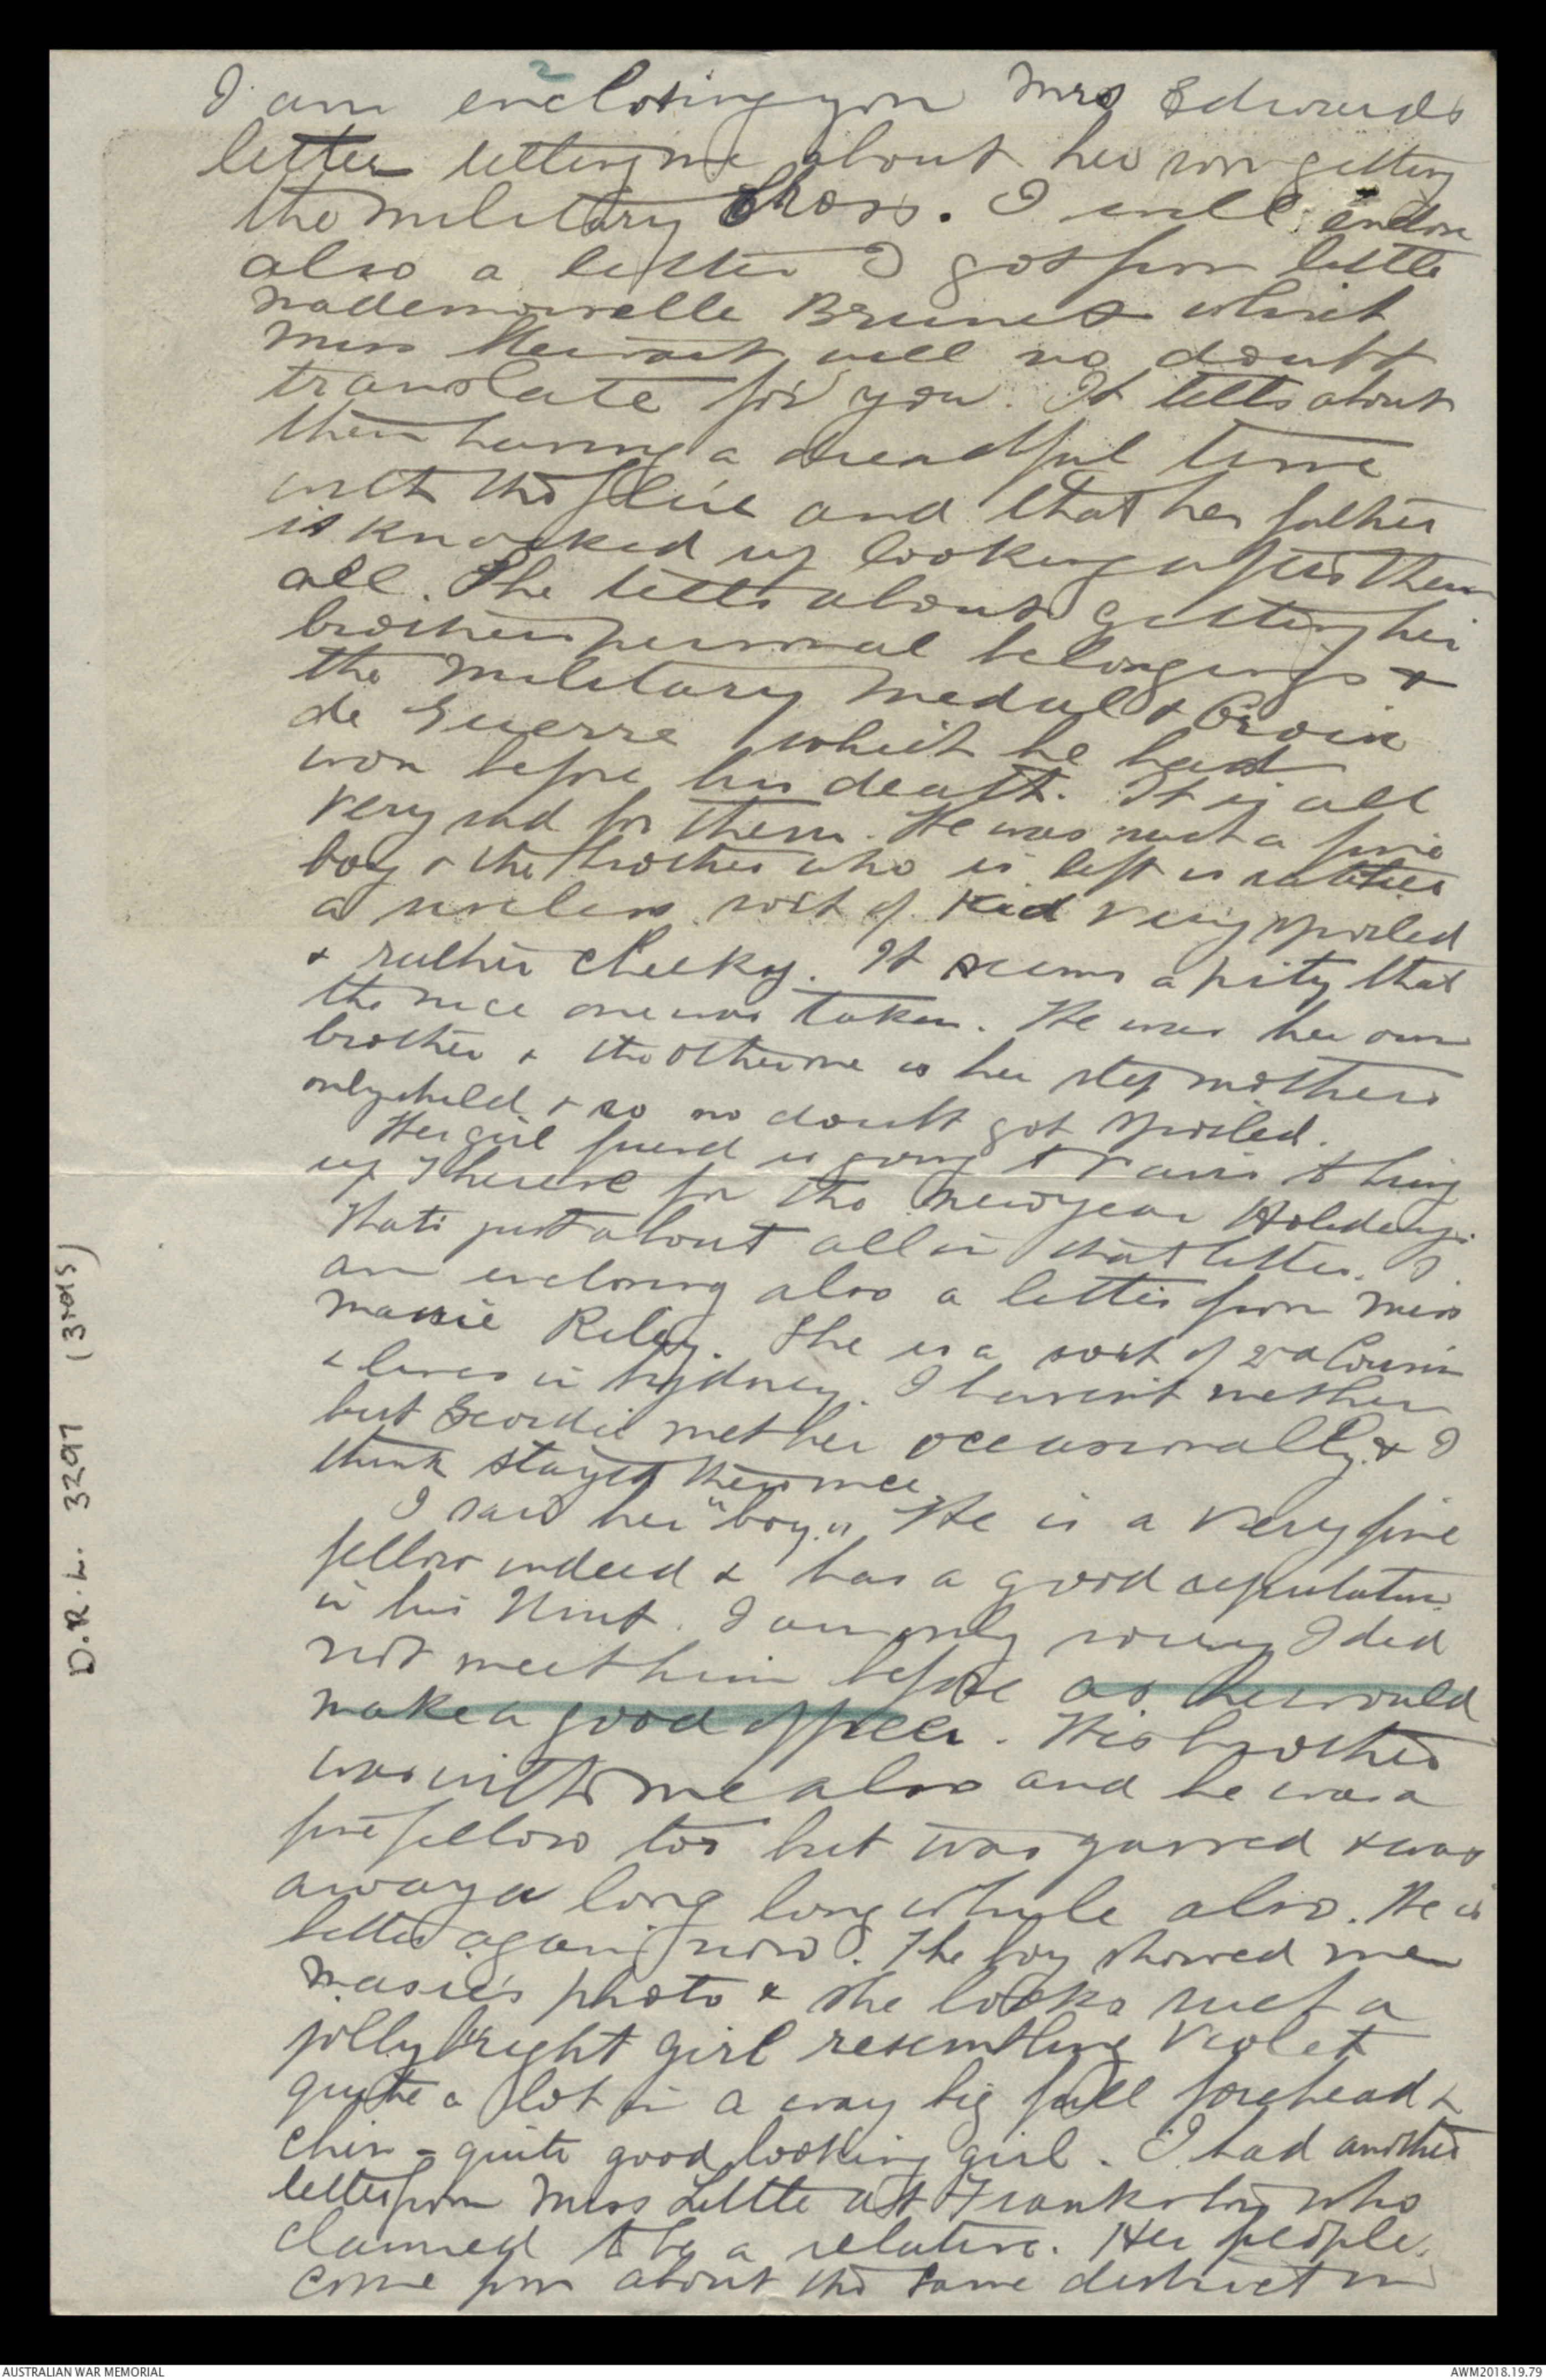 2
I am enclosing you Mrs Edwards
letter telling me about her son getting
the Military Cross. I will enclose
also a letter I got from little
Mademoiselle Brunet which
Miss will no doubt
translate for you. It tells about
them having a dreadful time
with the flue and that her father
is knocked up looking after them
all. She tells about getting her
brothers personal belongings &
the Military Medal & Croix
de Guerre which he had
won before his death. It is all
very sad for them. He was such a fine
boy & the brother who is left is rather
a useless sort of kid very spoiled
& rather cheeky. It seems a pity that
the nice one was taken. He was her own
brother & the other one is her step mothers
only child & so no doubt got spoiled.
Her girl friend is going to Paris to bring
up Therese for the new year Holidays.
Thats just about all in that letter. I
am enclosing also a letter from Miss
Massie Riley. She is a sort of 2nd Cousin
& lives in Sydney. I havent met her
but Geordie met her occasionally & I
think stayed there once.
I saw her "boy". He is a very fine
fellow indeed & has a good reputation
in his Unit. I am only sorry I did
not meet him before as he would
make a good officer. His brother
was with me also and he was a
fine fellow too but was gassed & was
away a long long while also. He is
better again now. The boy showed me
Masie's photo & she looks such a
jolly bright girl resembling Violet
quite a lot in a way big full forehead &
chin - quite good looking girl. I had another
letter from Miss Little at Frankston who
claimed to be a relative. Her people
come from about the same district in
D.R.L. 3297 (3rd IS)
AUSTRALIAN WAR MEMORIAL
AWM2018.19.79